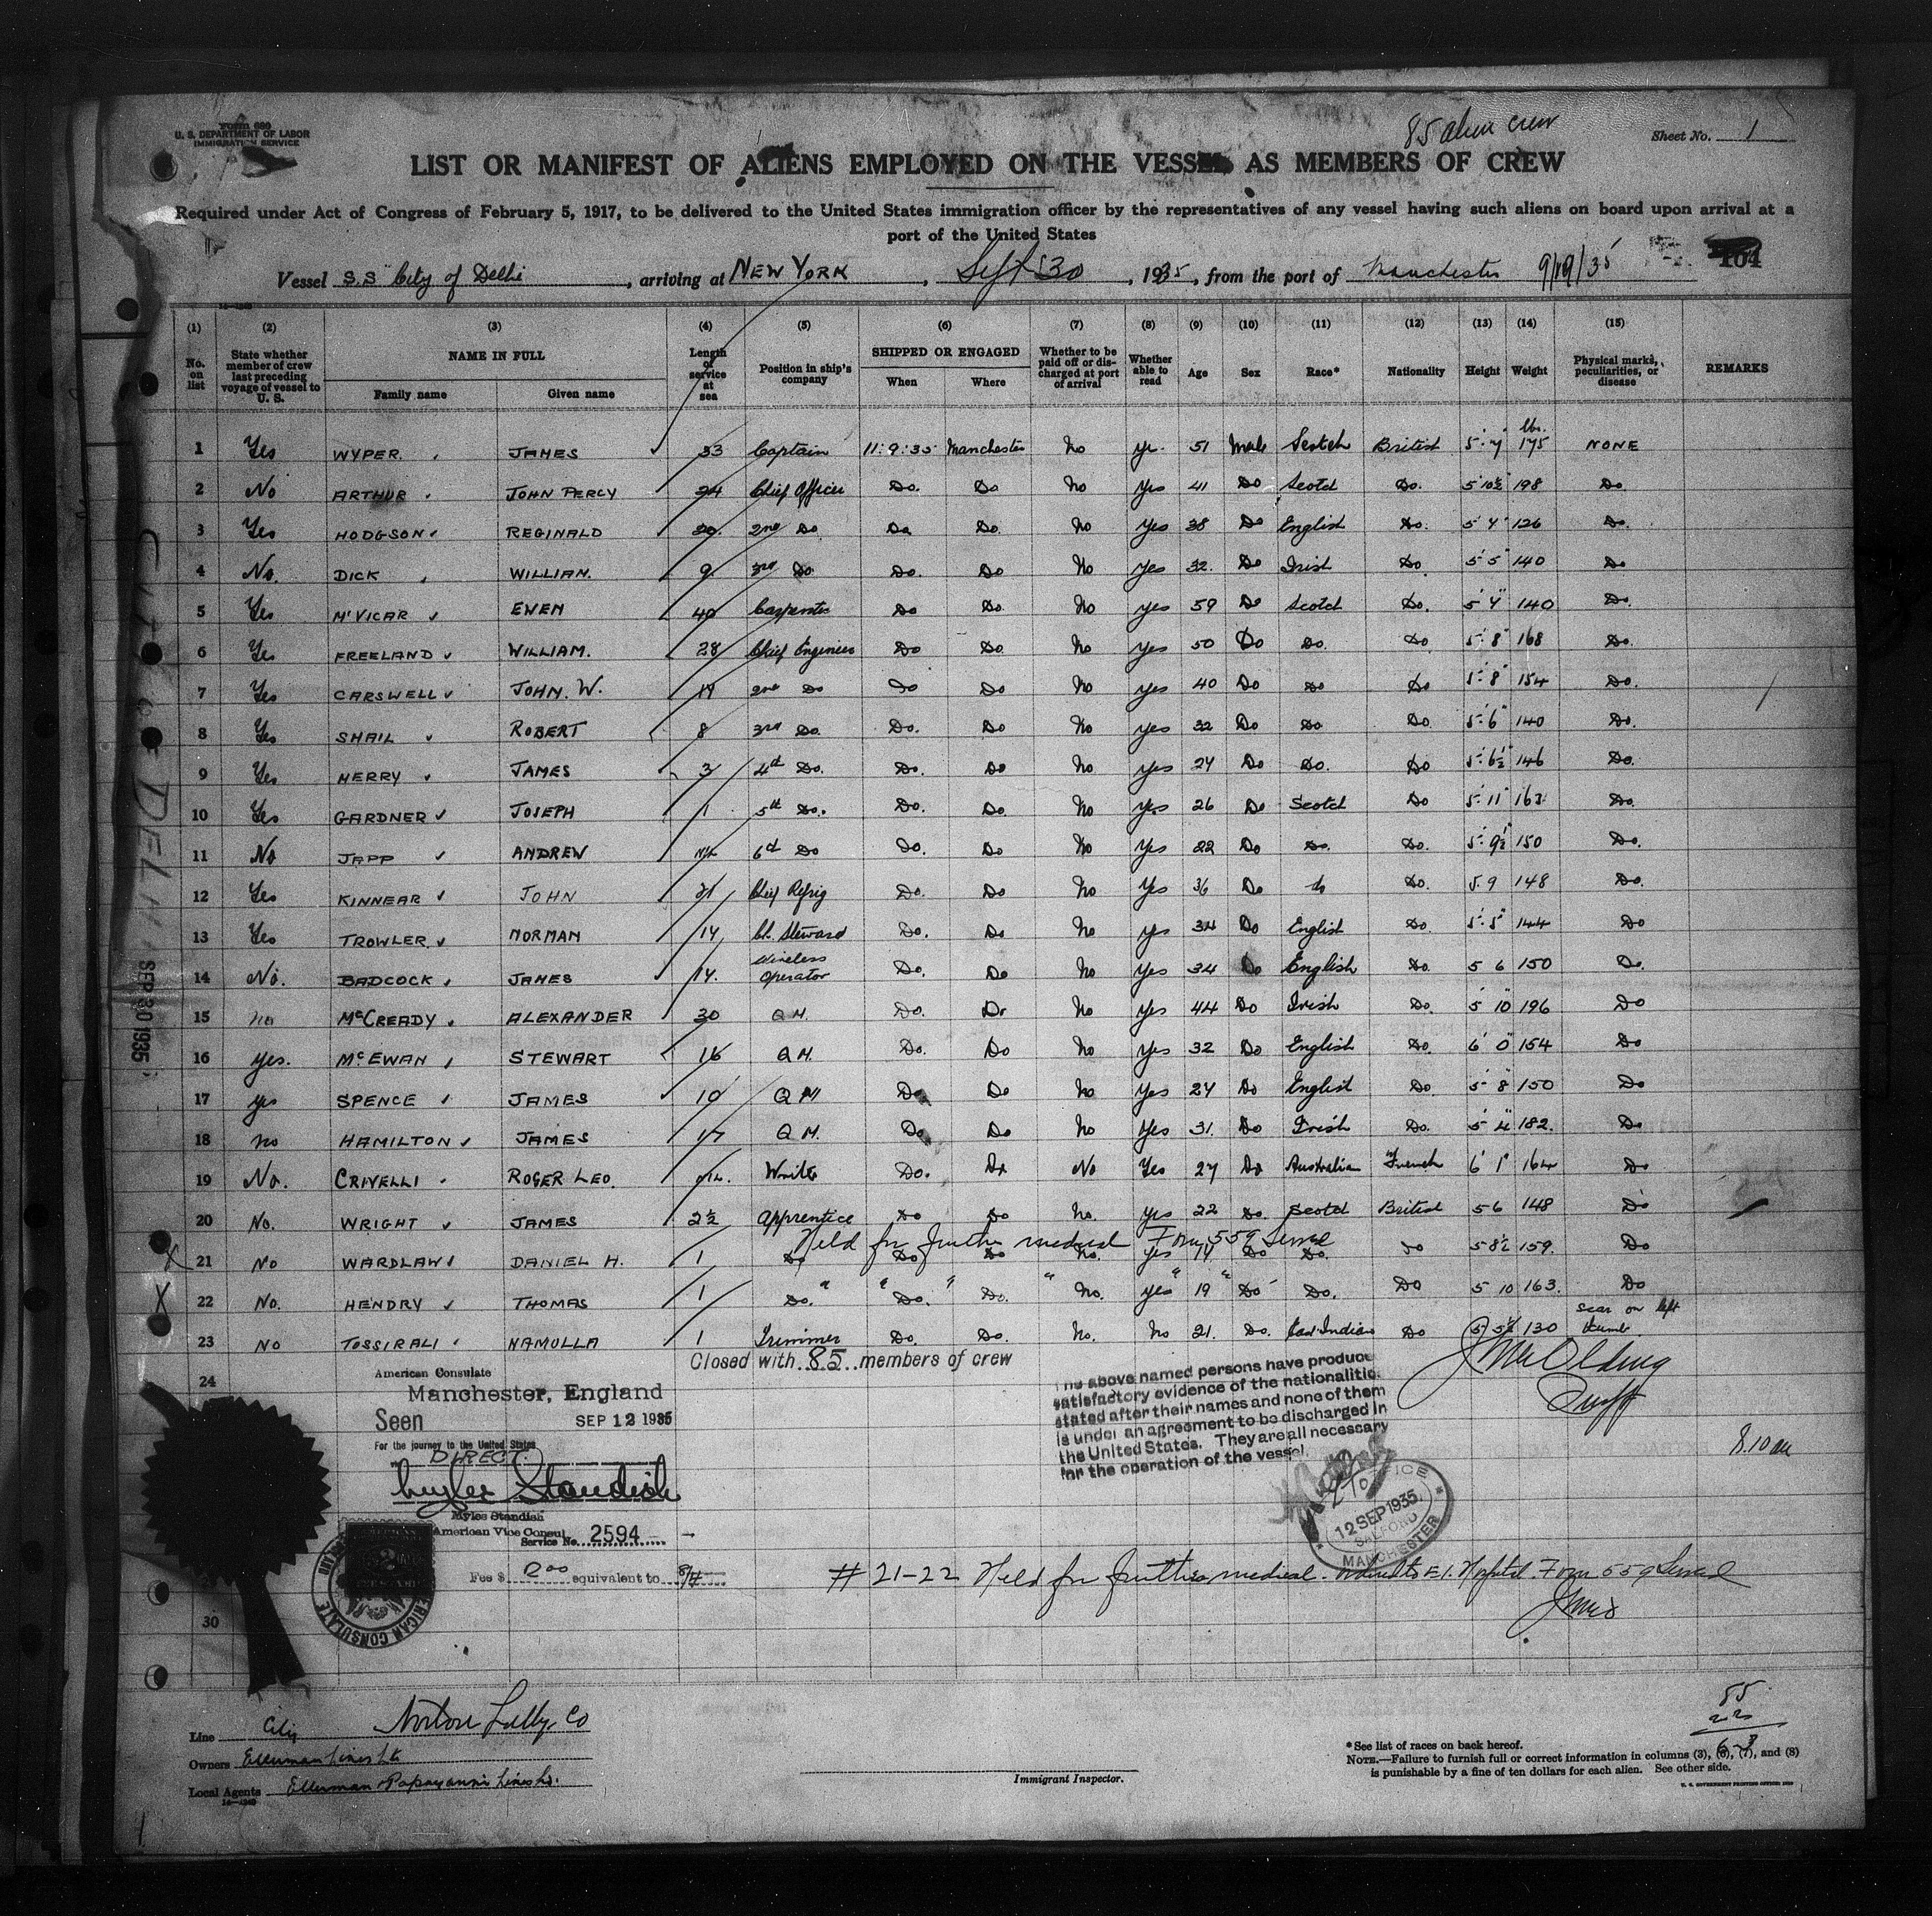 Form 680
U. S. DEPARTMENT OF LABOR
IMMIGRATION SERVICE
85 alien crew
Sheet No. 1
LIST OR MANIFEST OF ALIENS EMPLOYED ON THE VESSEL AS MEMBERS OF CREW
Required under Act of Congress of February 5, 1917, to be delivered to the United States immigration officer by the representatives of any vessel having such aliens on board upon arrival at a
port of the United States
Vessel S.S City of Delhi, arriving at NEW YORK, Sept 30, 1935, from the port of Manchester 9/19/35
(1) (2) (3) (4) (5) (6) (7) (8) (9) (10) (11) (12) (13) (14) (15)
No. on list State whether member of crew last preceding voyage of vessel to U. S. NAME IN FULL Family name Given name Length of service at sea Position in ship's company SHIPPED OR ENGAGED When Where Whether to be paid off or discharged at port of arrival Whether able to read Age Sex Race* Nationality Height Weight Physical marks, peculiarities, or disease REMARKS
1 Yes WYPER JAMES 33 Captain 11:9:35 Manchester No yes 51 Male Scotch British 5'7" lbs. 175 NONE
2 No ARTHUR JOHN PERCY 24 Chief Officer Do. Do No Yes 41 Do Scotch Do. 5'10½ 198 Do
3 Yes HODGSON REGINALD 20 2nd Do Do Do. No Yes 38 Do English Do. 5'4" 126 Do.
4 No. DICK WILLIAM. 9 3rd Do. Do. Do No Yes 32. Do Irish Do 5'5" 140 Do
5 Yes McVICAR EWEN 40 Carpenter Do Do. No yes 59 Do Scotch Do. 5'4" 140 Do.
6 Yes FREELAND WILLIAM. 28 Chief Engineer Do Do No Yes 50 Do Do. Do 5'8" 168 Do.
7 Yes CARSWELL JOHN. W. 19 2nd Do Do Do No yes 40 Do Do Do 5'8" 154 Do.
8 Yes SMAIL ROBERT 8 3rd Do. Do. Do No yes 32 Do Do Do. 5'6" 140 Do.
9 Yes MERRY JAMES 3 4th Do. Do. Do No yes 24 Do Do. Do 5'6½" 146 Do.
10 Yes GARDNER JOSEPH 1 5th Do. Do. Do. No yes 26 Do Scotch Do 5'11" 163 Do.
11 No JAPP ANDREW 6th Do Do. Do No Yes 22 Do Do. Do. 5'9½" 150 Do.
12 Yes KINNEAR JOHN 21 Chief Refrig Do. Do No Yes 36 Do do Do. 5.9 148 Do.
13 Yes TROWLER NORMAN 14 Ch. Steward Do. Do No yes 34 Do English Do. 5'5" 144 Do
14 No. BADCOCK JAMES 14. Wireless Operator Do. Do No Yes 34 Do English Do. 5 6 150 Do.
15 no McCREADY ALEXANDER 30 Q M. Do. Do No Yes 44 Do Irish Do. 5 10" 196 Do
16 yes. McEWAN STEWART 16 Q M. Do. Do No Yes 32 Do English Do. 6' 0" 154 Do
17 yes SPENCE JAMES 10 Q M Do. Do No Yes 24 Do English Do 5'8" 150 Do
18 no HAMILTON JAMES 17 Q M. Do. Do No Yes 31. Do Irish Do. 5'4" 182. Do
19 No. CRIVELLI ROGER LEO. Writer Do. Do No Yes 27 Do Australian French 6' 1" 164 Do
20 No. WRIGHT JAMES 2½ Apprentice Do Do No. Yes 22 Do. Scotch British 5 6 148 Do
Held for further medical Form 559 Served
21 No WARDLAW DANIEL H. 1 Do Do Do No. yes 19 Do Do. Do 5 8½ 159. Do
22 No. HENDRY THOMAS 1 Do. Do. Do. No. yes 19 Do Do. Do 5 10 163. Do
23 No TOSSIRALI NAMULLA 1 Trimmer Do. Do. No. No 21. Do. East Indian Do 5 5½ 130 scar on left thumb.
Closed with 85 members of crew
24
American Consulate
Manchester, England
Seen SEP 12 1935
For the journey to the United States
via DIRECT.
Myles Standish
Myles Standish
American Vice Consul
Service No. 2594
Fee $ 2.00 equivalent to 8/4
The above named persons have produced
satisfactory evidence of the nationalities
stated after their names and none of them
is under an agreement to be discharged in
the United States. They are all necessary
for the operation of the vessel.
8.10 am
OFFICE
12 SEP 1935
SALFORD
MANCHESTER
# 21-22 Held for further medical. Ordered to E.I. Hospital. Form 559 Served
30
AMERICAN CONSULATE
CITY OF DELHI
SEP 30 1935
Line City Norton Lilly, Co
Owners Ellerman Lines Ltd
Local Agents Ellerman & Papayanni Lines Ld.
Immigrant Inspector.
85
22
63
*See list of races on back hereof.
NOTE.—Failure to furnish full or correct information in columns (3), (6), (7), and (8)
is punishable by a fine of ten dollars for each alien. See other side.
U. S. GOVERNMENT PRINTING OFFICE